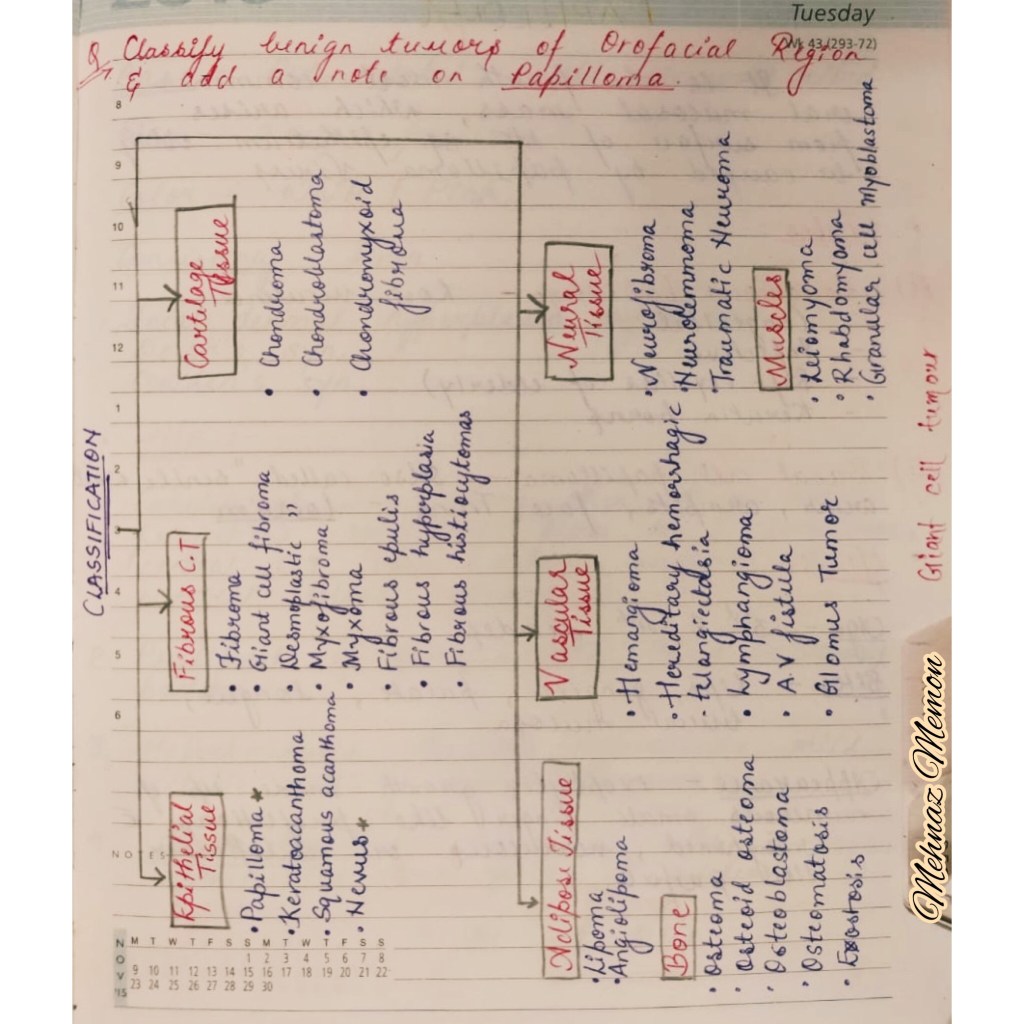 Tuesday
Wk 43 (293-72)
Q. Classify benign tumors of Orofacial Region
& add a note on Papilloma.
CLASSIFICATION
Epithelial
Tissue
• Papilloma *
• Keratoacanthoma
• Squamous acanthoma
• Nevus *
Fibrous C.T
• Fibroma
• Giant cell fibroma
• Desmoplastic "
• Myxofibroma
• Myxoma
• Fibrous epulis
• Fibrous hyperplasia
• Fibrous histiocytomas
Cartilage
Tissue
• Chondroma
• Chondroblastoma
• Chondromyxoid
fibroma
Adipose Tissue
• Lipoma
• Angiolipoma
Bone
• Osteoma
• Osteoid osteoma
• Osteoblastoma
• Osteomatosis
• Exostosis
Vascular
Tissue
• Hemangioma
• Hereditary hemorrhagic
telangiectasia
• Lymphangioma
• A.V fistula
• Glomus Tumor
Neural
Tissue
• Neurofibroma
• Neurolemmoma
• Traumatic Neuroma
Muscles
• Leiomyoma
• Rhabdomyoma
• Granular cell myoblastoma
Giant cell tumour
8
9
10
11
12
1
2
3
4
5
6
NOTES
NOV '15
M T W T F S S M T W T F S S
1 2 3 4 5 6 7 8
9 10 11 12 13 14 15 16 17 18 19 20 21 22
23 24 25 26 27 28 29 30
Mehnaz Memon